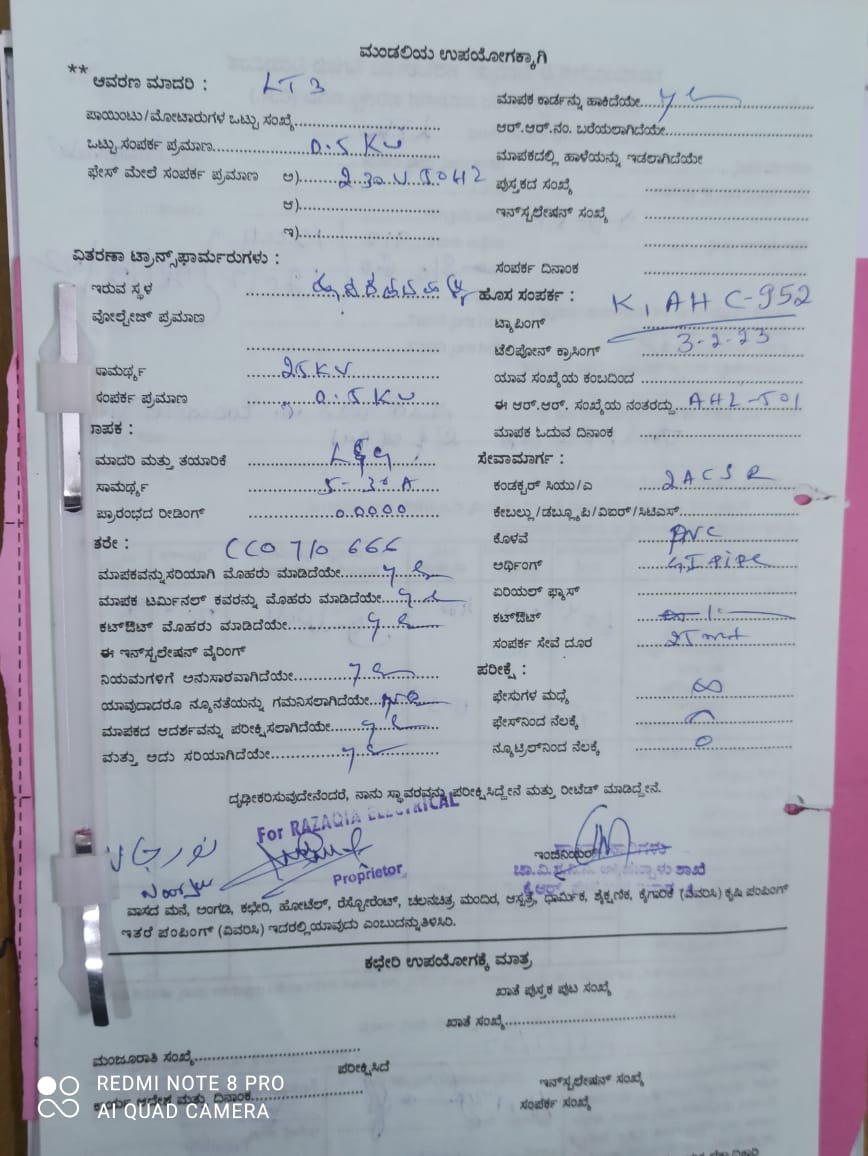 ಮಂಡಲಿಯ ಉಪಯೋಗಕ್ಕಾಗಿ
** ಆವರಣ ಮಾದರಿ : LT 3
ಪಾಯಿಂಟು/ಮೋಟಾರುಗಳ ಒಟ್ಟು ಸಂಖ್ಯೆ
ಒಟ್ಟು ಸಂಪರ್ಕ ಪ್ರಮಾಣ 0.5 KW
ಫೇಸ್ ಮೇಲೆ ಸಂಪರ್ಕ ಪ್ರಮಾಣ ಅ) 230.V.50HZ
ಆ)
ಇ)
ವಿತರಣಾ ಟ್ರಾನ್ಸ್‌ಫಾರ್ಮರುಗಳು :
ಇರುವ ಸ್ಥಳ
ವೋಲ್ಟೇಜ್ ಪ್ರಮಾಣ
ಸಾಮರ್ಥ್ಯ 25KV
ಸಂಪರ್ಕ ಪ್ರಮಾಣ 0.5 KW
ಮಾಪಕ :
ಮಾದರಿ ಮತ್ತು ತಯಾರಿಕೆ
ಸಾಮರ್ಥ್ಯ 5-30A
ಪ್ರಾರಂಭದ ರೀಡಿಂಗ್ 0.0000
ತರೇ : CCO 710 666
ಮಾಪಕವನ್ನು ಸರಿಯಾಗಿ ಮೊಹರು ಮಾಡಿದೆಯೇ yes
ಮಾಪಕ ಟರ್ಮಿನಲ್ ಕವರನ್ನು ಮೊಹರು ಮಾಡಿದೆಯೇ yes
ಕಟ್‌ಔಟ್ ಮೊಹರು ಮಾಡಿದೆಯೇ yes
ಈ ಇನ್‌ಸ್ಟಲೇಷನ್ ವೈರಿಂಗ್
ನಿಯಮಗಳಿಗೆ ಅನುಸಾರವಾಗಿದೆಯೇ yes
ಯಾವುದಾದರೂ ನ್ಯೂನತೆಯನ್ನು ಗಮನಿಸಲಾಗಿದೆಯೇ
ಮಾಪಕದ ಆದರ್ಶವನ್ನು ಪರೀಕ್ಷಿಸಲಾಗಿದೆಯೇ yes
ಮತ್ತು ಅದು ಸರಿಯಾಗಿದೆಯೇ yes
ಮಾಪಕ ಕಾರ್ಡನ್ನು ಹಾಕಿದೆಯೇ yes
ಆರ್.ಆರ್.ನಂ. ಬರೆಯಲಾಗಿದೆಯೇ
ಮಾಪಕದಲ್ಲಿ ಹಾಳೆಯನ್ನು ಇಡಲಾಗಿದೆಯೇ
ಪುಸ್ತಕದ ಸಂಖ್ಯೆ
ಇನ್‌ಸ್ಟಲೇಷನ್ ಸಂಖ್ಯೆ
ಸಂಪರ್ಕ ದಿನಾಂಕ
ಹೊಸ ಸಂಪರ್ಕ : K, AHC-952
ಟ್ಯಾಪಿಂಗ್
3-2-23
ಟೆಲಿಫೋನ್ ಕ್ರಾಸಿಂಗ್
ಯಾವ ಸಂಖ್ಯೆಯ ಕಂಬದಿಂದ
ಈ ಆರ್.ಆರ್. ಸಂಖ್ಯೆಯ ನಂತರದ್ದು AHL-501
ಮಾಪಕ ಓದುವ ದಿನಾಂಕ
ಸೇವಾಮಾರ್ಗ :
ಕಂಡಕ್ಟರ್ ಸಿಯು/ಎ 2ACSR
ಕೇಬಲ್ಲು/ಡಬ್ಲ್ಯೂಪಿ/ವಿಐಆರ್/ಸಿಟಿಎಸ್
ಕೊಳವೆ PVC
ಅರ್ಥಿಂಗ್ G.I Pipe
ಏರಿಯಲ್ ಫ್ಯೂಸ್
ಕಟ್‌ಔಟ್
ಸಂಪರ್ಕ ಸೇವೆ ದೂರ 25 mt
ಪರೀಕ್ಷೆ :
ಫೇಸುಗಳ ಮಧ್ಯೆ ∞
ಫೇಸ್‌ನಿಂದ ನೆಲಕ್ಕೆ
ನ್ಯೂಟ್ರಲ್‌ನಿಂದ ನೆಲಕ್ಕೆ 0
ದೃಢೀಕರಿಸುವುದೇನೆಂದರೆ, ನಾನು ಸ್ಥಾವರವನ್ನು ಪರೀಕ್ಷಿಸಿದ್ದೇನೆ ಮತ್ತು ರೀಟೆಡ್ ಮಾಡಿದ್ದೇನೆ.
For RAZAQIA ELECTRICAL
نورجان
Proprietor
ಇಂಜಿನಿಯರ್
ವಾಸದ ಮನೆ, ಅಂಗಡಿ, ಕಛೇರಿ, ಹೋಟೆಲ್, ರೆಸ್ಟೋರೆಂಟ್, ಚಲನಚಿತ್ರ ಮಂದಿರ, ಆಸ್ಪತ್ರೆ, ಧಾರ್ಮಿಕ, ಶೈಕ್ಷಣಿಕ, ಕೈಗಾರಿಕೆ (ವಿವರಿಸಿ) ಕೃಷಿ ಪಂಪಿಂಗ್
ಇತರೆ ಪಂಪಿಂಗ್ (ವಿವರಿಸಿ) ಇದರಲ್ಲಿ ಯಾವುದು ಎಂಬುದನ್ನು ತಿಳಿಸಿರಿ.
ಕಛೇರಿ ಉಪಯೋಗಕ್ಕೆ ಮಾತ್ರ
ಖಾತೆ ಪುಸ್ತಕ ಪುಟ ಸಂಖ್ಯೆ
ಖಾತೆ ಸಂಖ್ಯೆ
ಮಂಜೂರಾತಿ ಸಂಖ್ಯೆ
ಪರೀಕ್ಷಿಸಿದೆ
ಇನ್‌ಸ್ಟಲೇಷನ್ ಸಂಖ್ಯೆ
ಕಾರ್ಯ ಆದೇಶ ಮತ್ತು ದಿನಾಂಕ
ಸಂಪರ್ಕ ಸಂಖ್ಯೆ
REDMI NOTE 8 PRO
AI QUAD CAMERA